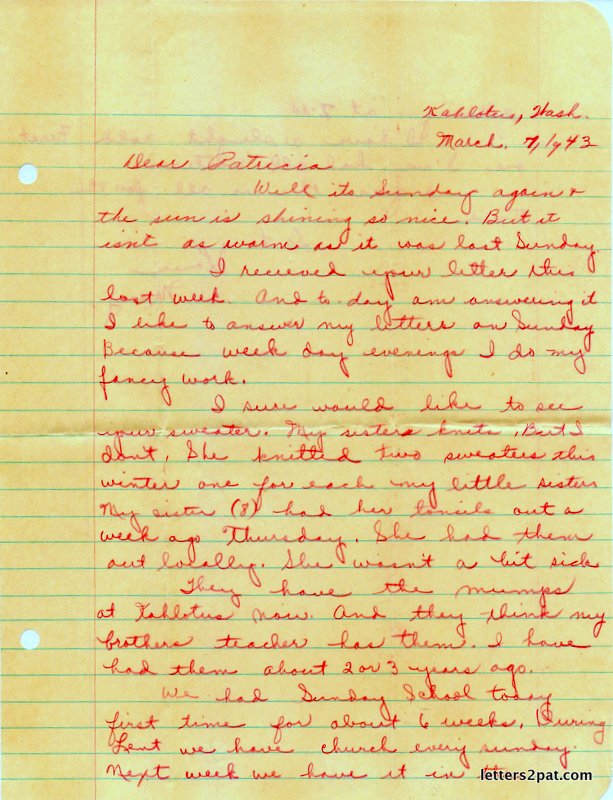 Kahlotus, Wash.
March. 7, 1943
Dear Patricia
Well its Sunday again &
the sun is shining so nice. But it
isn't as warm as it was last Sunday
I recieved your letter this
last week. And to-day am answering it
I like to answer my letters on Sunday
Because week day evenings I do my
fancy work.
I sure would like to see
your sweater. My sisters knits, But I
don't. She knitted two sweaters this
winter one for each my little sisters
My sister (8) had her tonsils out a
week ago Thursday. She had them
out locally. She wasn't a bit sick
They have the mumps
at Kahlotus now. And they think my
brothers teacher has them. I have
had them about 2 or 3 years ago.
We had Sunday School today
first time for about 6 weeks. During
Lent we have church every sunday.
Next week we have it in the
letters2pat.com